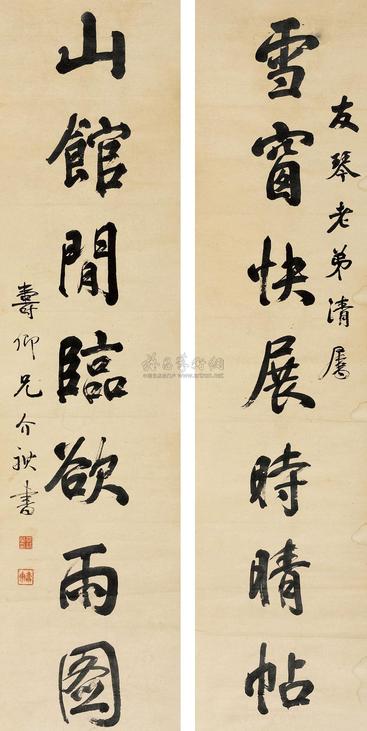 友琴老弟清属
雪窗快展時晴帖
山館閒臨欲雨图
壽卿兄介祺書